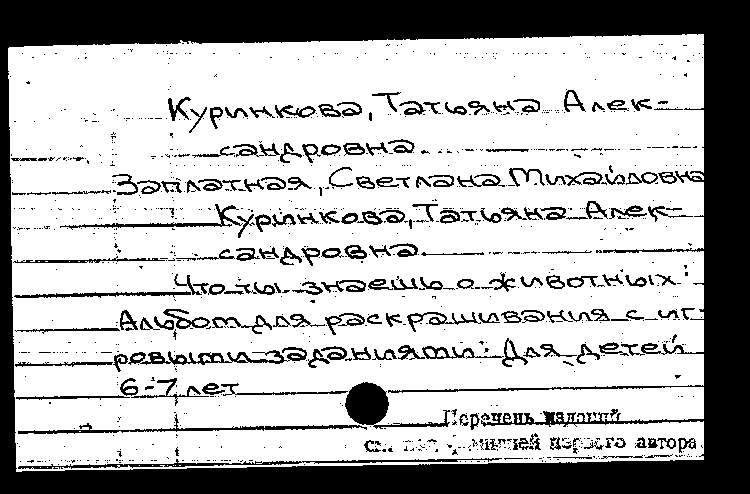 Куринкова, Татьяна Алек-
сандровна.
Заплатная, Светлана Михайловна
Куринкова, Татьяна Алек-
сандровна.
Что ты знаешь о животных:
Альбом для раскрашивания с иг-
ровыми заданиями: Для детей
6-7 лет
Перечень изданий
см. под фамилией первого автора